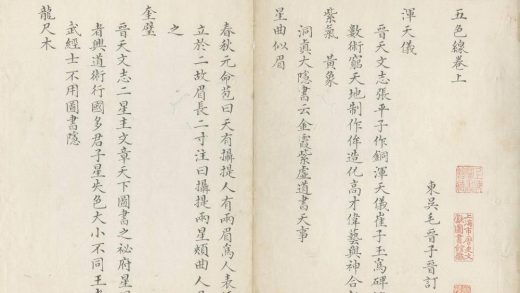 五色線卷上
東吳毛晉子晉訂
渾天儀
晉天文志張平子作銅渾天儀崔子玉為碑
數術窮天地制作侔造化高才偉藝與神合
紫氣 黃象
洞真大隱書云金霞紫虛道書天事
星曲似眉
春秋元命苞曰天有攝提人有兩眉為人表
立於二故眉長二寸注曰攝提兩星頗曲人
之
奎壁
晉天文志二星主文章天下圖書之祕府星
者興道術行國多君子星失色大小不同王
武經士不用圖書隱
龍尺木